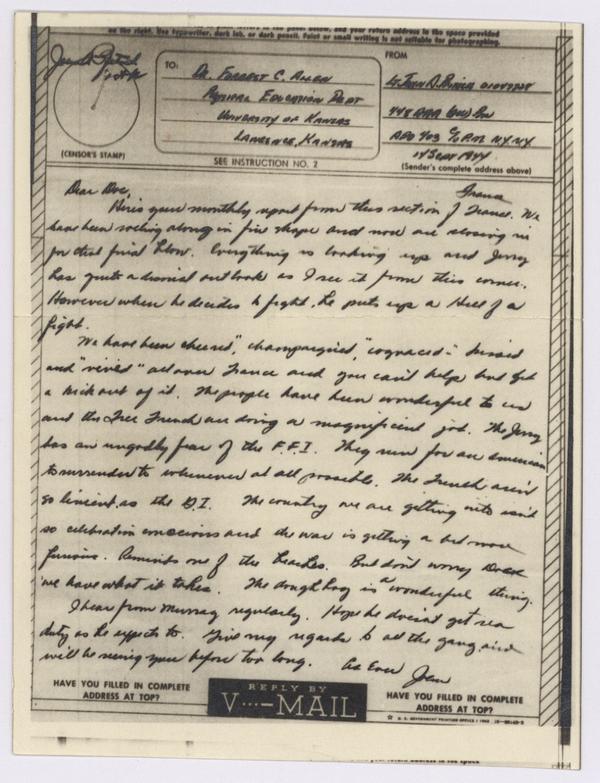 on the right. Use typewriter, dark ink, or dark pencil. Faint or small writing is not suitable for photographing.
(CENSOR'S STAMP)
TO:
Dr. Forrest C. Allen
Physical Education Dept
University of Kansas
Lawrence, Kansas
SEE INSTRUCTION NO. 2
FROM
Lt John D.
448 AAA Bn
APO 403 c/o P.M. N.Y. N.Y.
14 Sept 1944
(Sender's complete address above)
France
Dear Doc,
Here's your monthly report from this section of France. We
have been rolling along in fine shape and now are closing in
for that final blow. Everything is looking up and Jerry
has quite a dismal outlook as I see it from this corner.
However when he decides to fight, he puts up a Hell of a
fight.
We have been cheered, "champaigned", "cognaced" - kissed
and "vived" all over France and you can't help but get
a kick out of it. The people have been wonderful to us
and the Free French are doing a magnificient job. The Jerry
has an ungodly fear of the F.F.I. They run for an American
to surrender to whenever at all possible. The French aren't
so linient as the G.I. The country we are getting into isn't
so celebration concious and the war is getting a bit more
furious. Reminds one of the beaches. But don't worry Doc
we have what it takes. The doughboy is a wonderful thing.
I hear from Murray regularly. Hope he doesn't get sea
duty as he expects to. Give my regards to all the gang and
will be seeing you before too long. As Ever John
HAVE YOU FILLED IN COMPLETE
ADDRESS AT TOP?
REPLY BY
V···—MAIL
HAVE YOU FILLED IN COMPLETE
ADDRESS AT TOP?
☆ U. S. GOVERNMENT PRINTING OFFICE